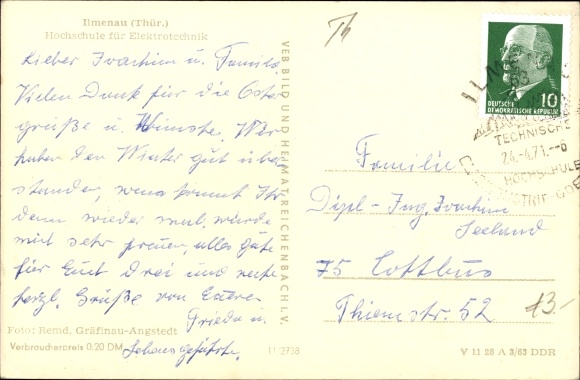 Ilmenau (Thür.)
Hochschule für Elektrotechnik
Lieber Joachim u. Familie.
Vielen Dank für die Oster
grüße u. Wünsche. Wir
haben den Winter gut über
standen, wenn kommt Ihr
denn wieder mal, würde
mich sehr freuen, alles Gute
für Euch drei und recht
herzl. Grüße von Eurer
Frieda u.
Lebensgefährte.
Foto: Remd, Gräfinau-Angstedt
Verbraucherpreis 0.20 DM
11 2738
VEB BILD UND HEIMAT REICHENBACH I. V.
Th
DEUTSCHE
DEMOKRATISCHE REPUBLIK
10
ILMENAU
63
TECHNISCHE
24.-4.71.--6
HOCHSCHULE
Familie
Dipl.-Ing. Joachim
Seeland
75 Cottbus
Thiemstr. 52
13.-
V 11 28 A 3/63 DDR